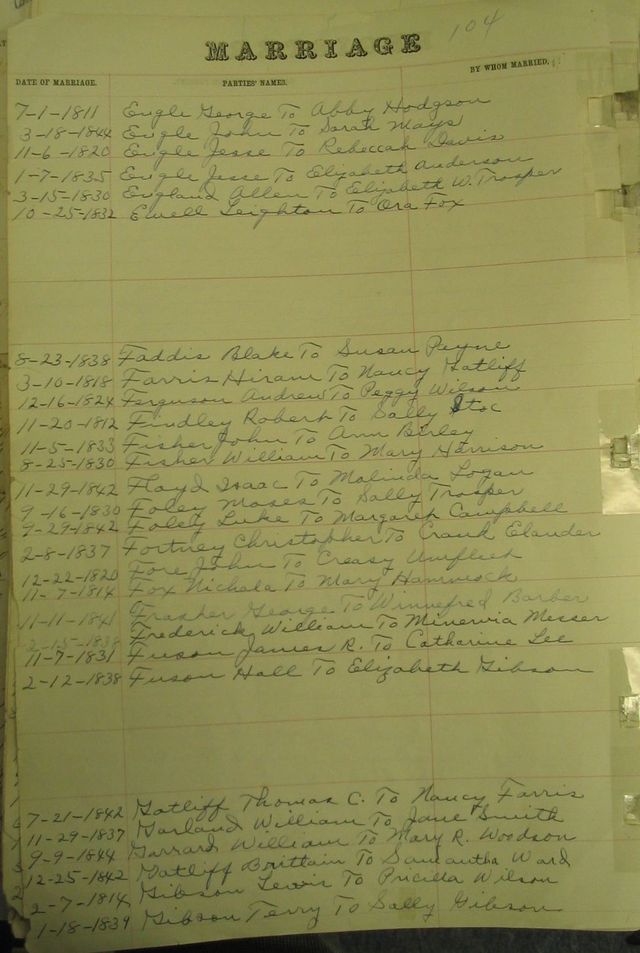 104
MARRIAGE
DATE OF MARRIAGE. PARTIES' NAMES. BY WHOM MARRIED.
7-1-1811 Engle George To Abby Hodgson
3-18-1844 Engle John To Sarah Mays
11-6-1820 Engle Jesse To Rebeccah Davis
1-7-1835 Engle Jesse To Elizabeth Anderson
3-15-1830 England Allen To Elizabeth W. Trosper
10-25-1832 Ewell Leighton To Ora Fox
8-23-1838 Faddis Blake To Susan Peyne
3-10-1818 Farris Hiram To Nancy Gatliff
12-16-1824 Ferguson Andrew To Peggy Wilson
11-20-1812 Findley Robert To Sally Stoc
11-5-1833 Fisher John To Ann Birley
8-25-1830 Fisher William To Mary Harrison
11-29-1842 Floyd Isaac To Malinda Logan
9-16-1830 Foley Moses To Sally Trosper
9-29-1842 Foley Luke To Margaret Campbell
2-8-1837 Fortney Christopher To Crank Elander
12-22-1820 Fore John To Creasy
11-7-1814 Fox Nichola To Mary Hammock
11-11-1841 Frasher George To Winnefred Barber
2-15-1838 Frederick William To Minervia Messer
11-7-1831 Fuson James R. To Catharine Lee
2-12-1838 Fuson Hall To Elizabeth Gibson
7-21-1842 Gatliff Thomas C. To Nancy Farris
11-29-1837 Garland William To Jane Smith
9-9-1844 Garrard William To Mary R. Woodson
12-25-1842 Gatliff Brittain To Samantha Ward
2-7-1814 Gibson Lewis To Pricilla Wilson
1-18-1839 Gibson Terry To Sally Gibson